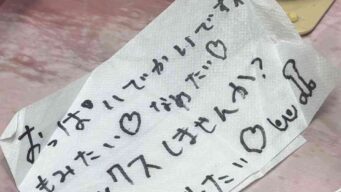 おっぱいでかいですね
もみたい♡なめたい♡
ックスしませんか?
したい♡